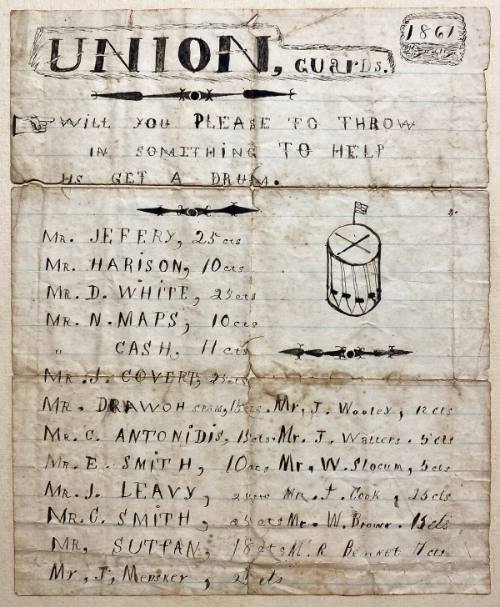 UNION, GUARDS. 1861
WILL YOU PLEASE TO THROW
IN SOMETHING TO HELP
US GET A DRUM.
MR. JEFERY, 25 cts
MR. HARISON, 10 cts
MR. D. WHITE, 25 cts
MR. N. MAPS, 10 cts
" CASH. 11 cts
MR. J. COVERT, 25 cts
MR. DRAWOH 15 cts. Mr, J. Wooley, 12 cts
MR. C. ANTONIDIS, 15 cts. Mr. J. Walters. 5 cts
MR. E. SMITH, 10 cts, Mr, W. Slocum, 5 cts
MR. J. LEAVY, Mr. J. Cook, 25 cts
MR. C. SMITH, 25 cts Mr. W. Brown. 15 cts
MR. SUTFAN, 18 cts, M. R Bennet 7 cts
Mr, J, Mensker, 25 cts